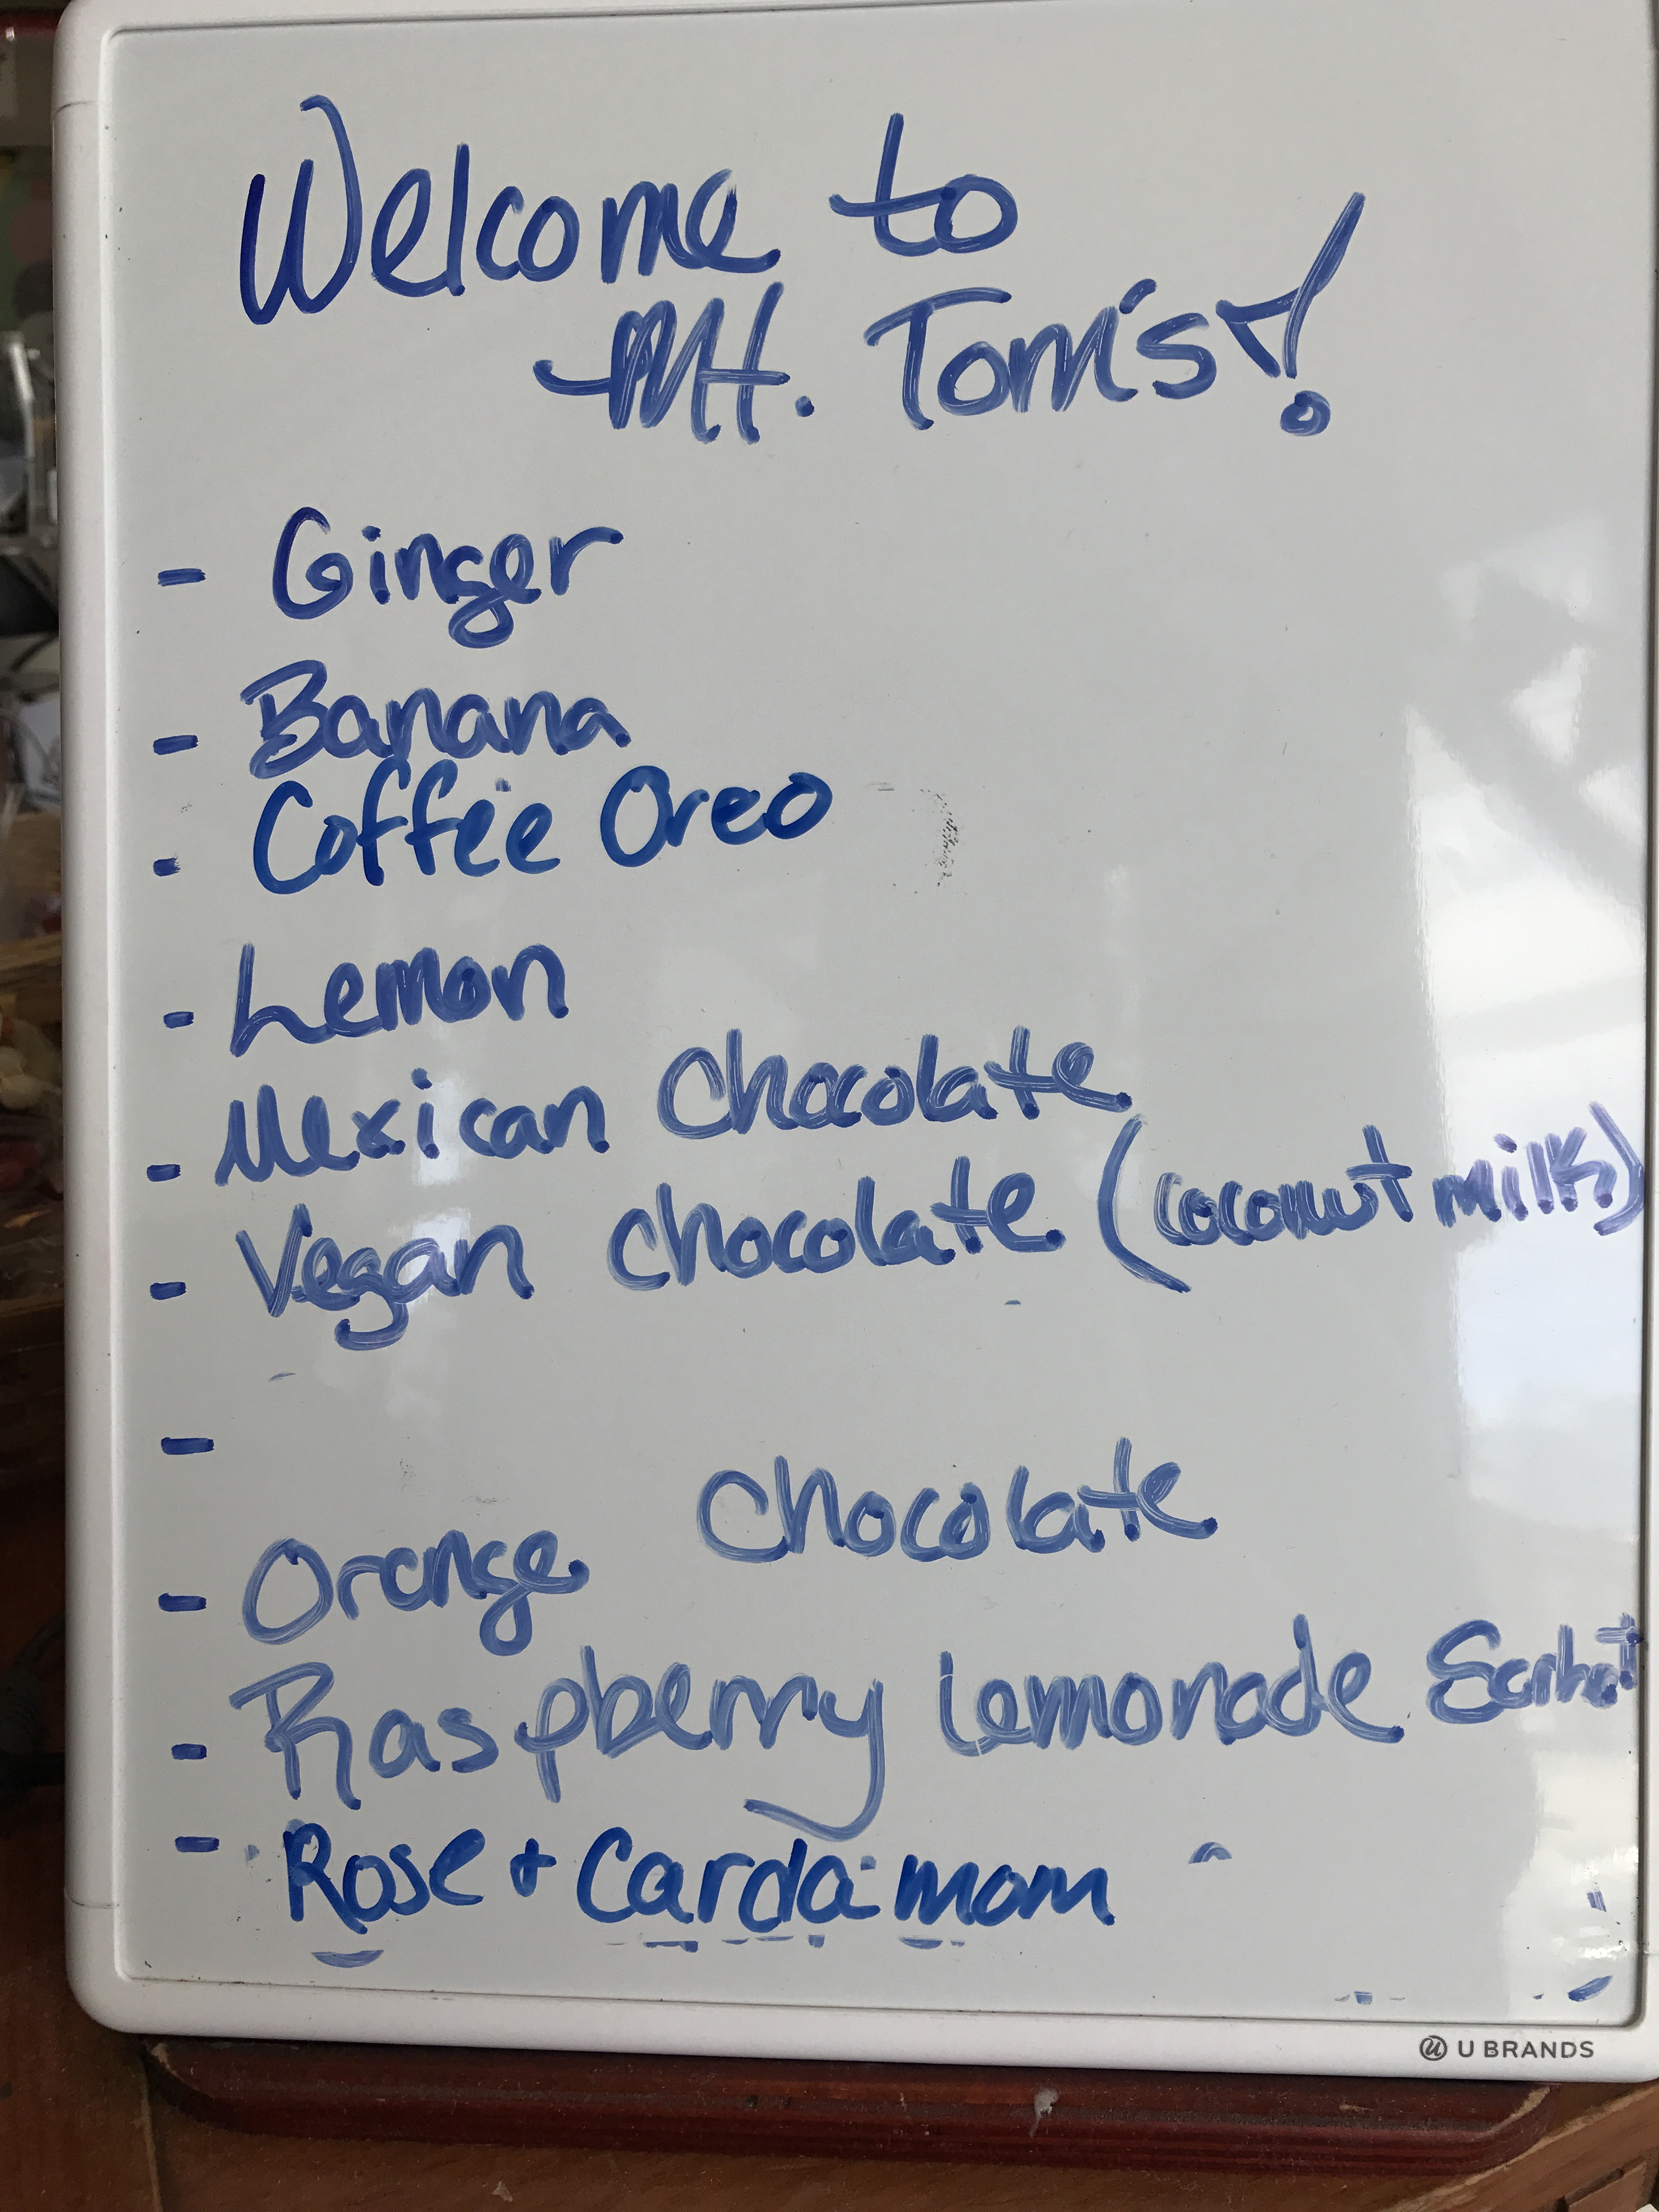 Welcome to
Mt. Tom's!
- Ginger
- Banana
- Coffee Oreo
- Lemon
- Mexican Chocolate
- Vegan chocolate (coconut milk)
-
- Orange Chocolate
- Raspberry Lemonade Sorbet
- Rose + Cardamom
U BRANDS